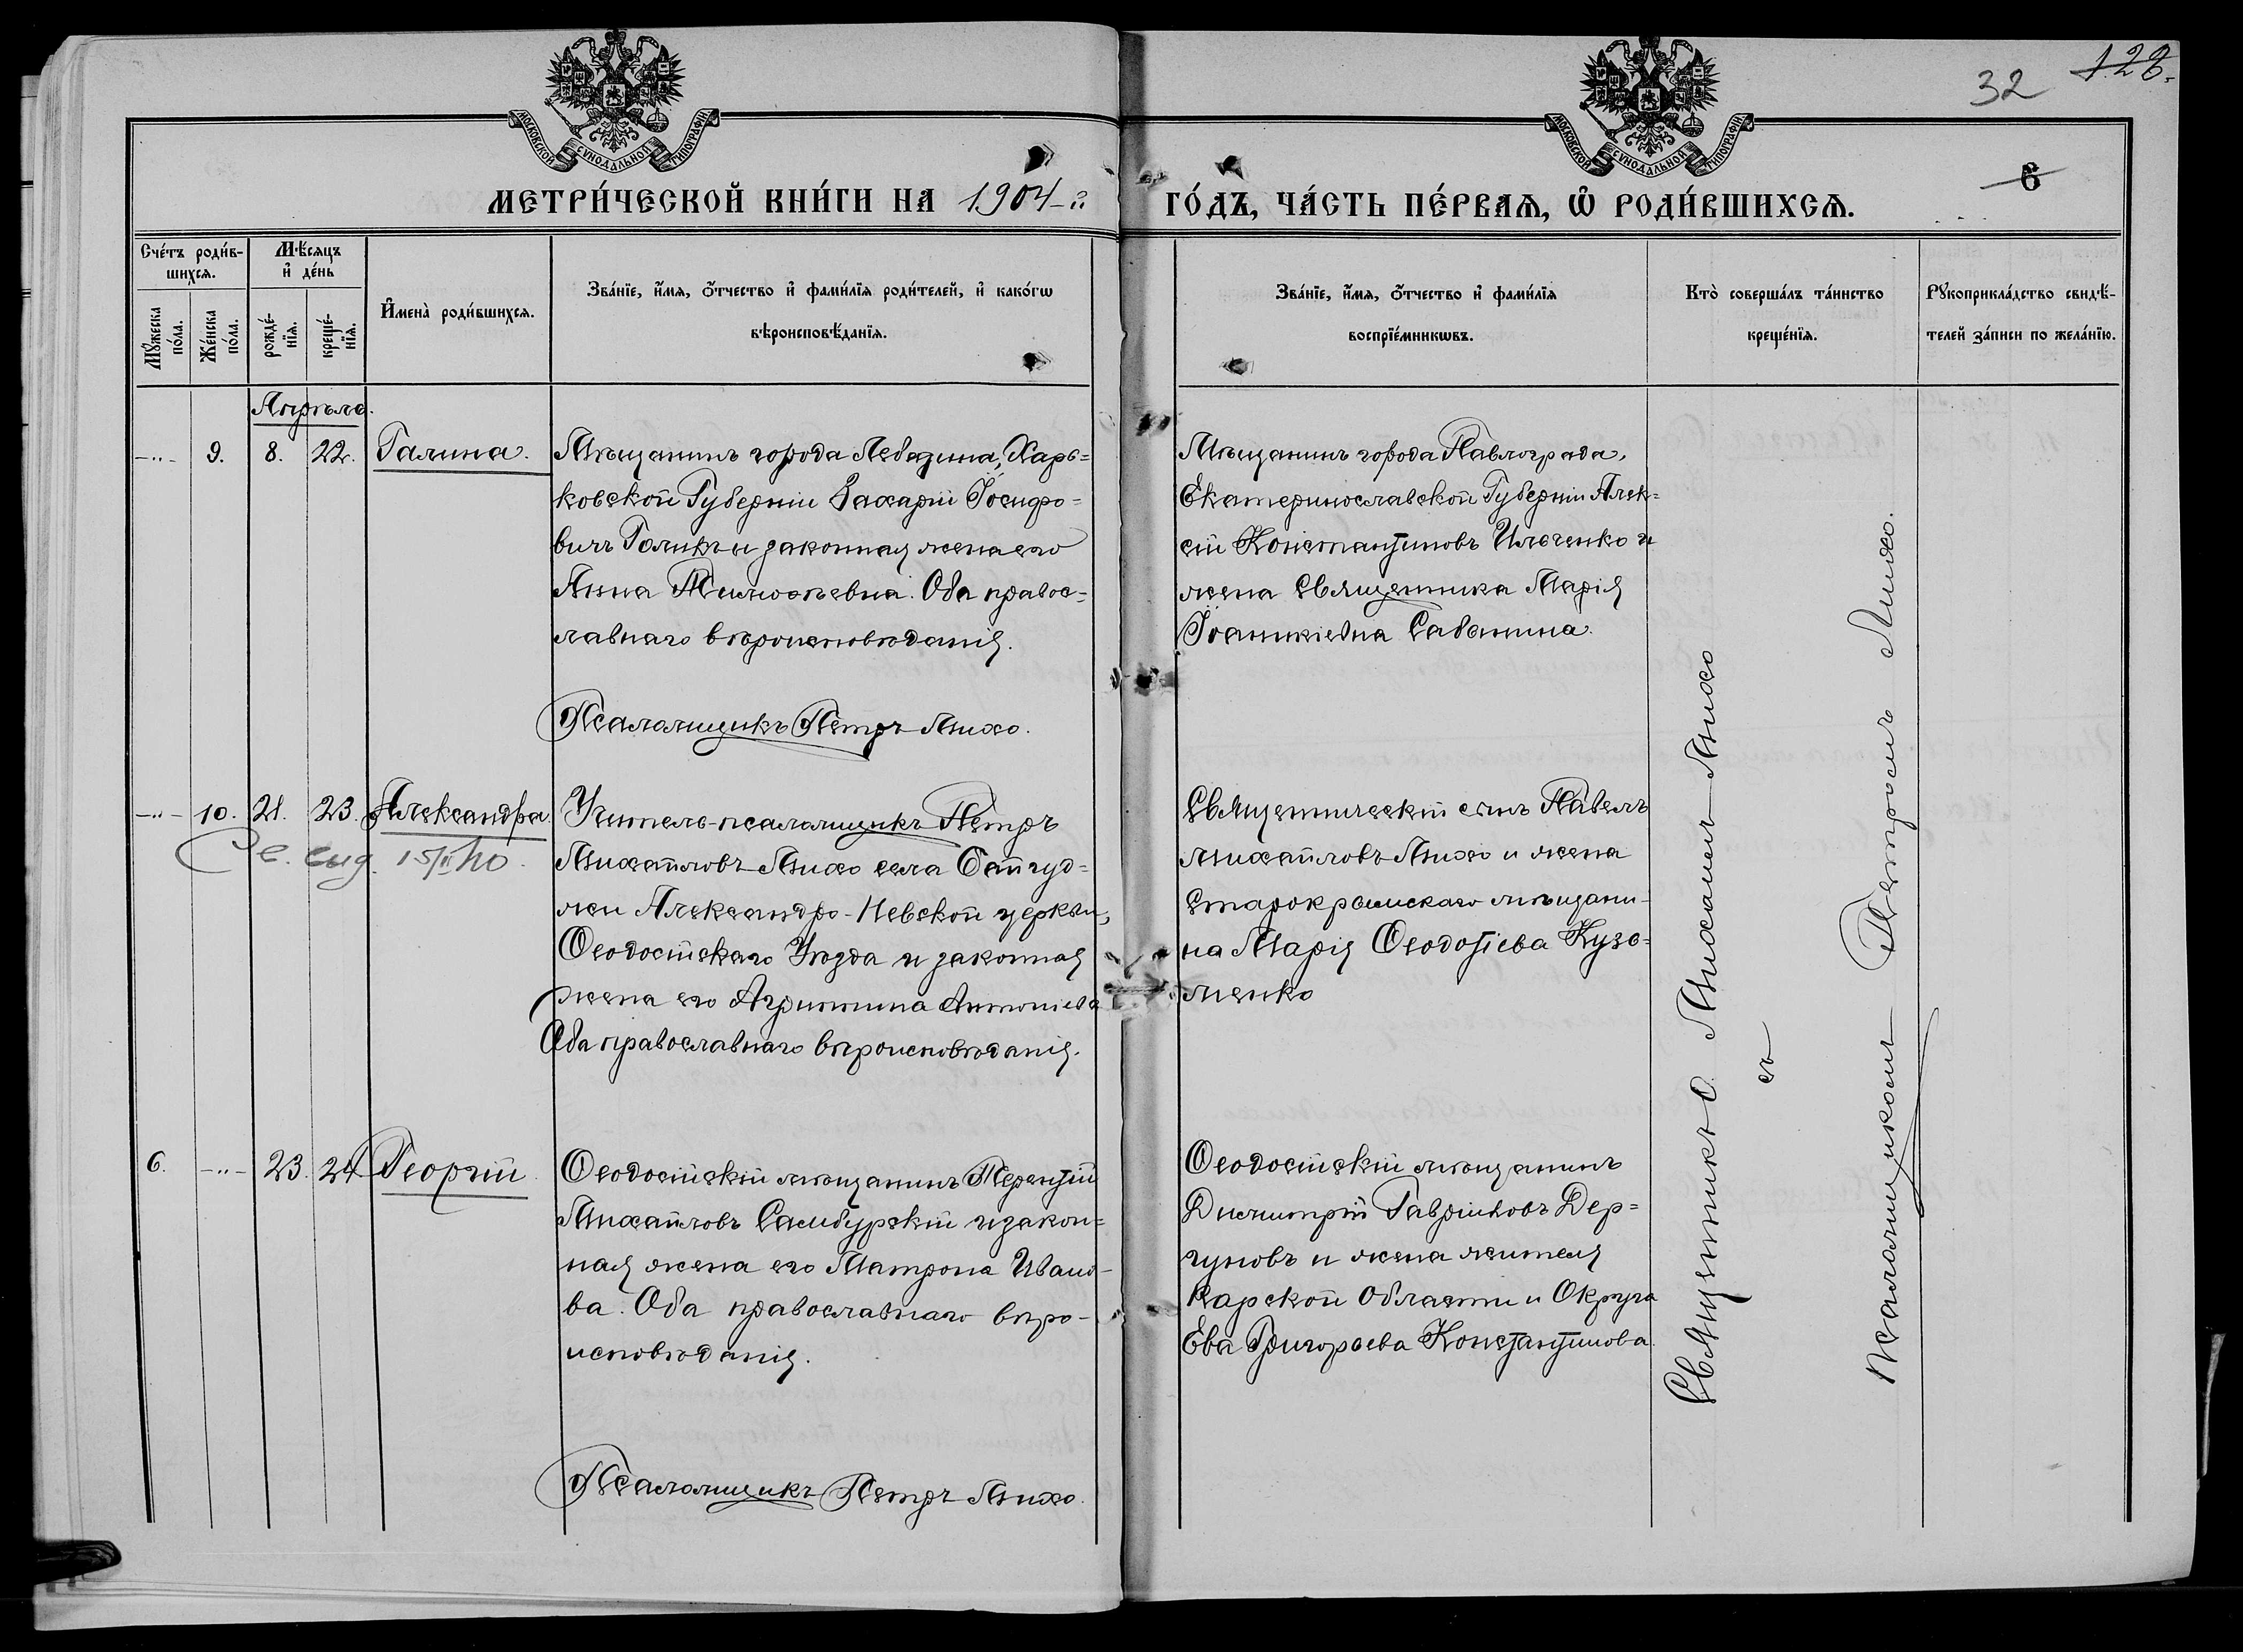 32 128.
МОСКОВСКОЙ СѴНОДАЛЬНОЙ ТИПОГРАФІИ
МОСКОВСКОЙ СѴНОДАЛЬНОЙ ТИПОГРАФІИ
6
МЕТРИ́ЧЕСКОЙ КНИ́ГИ НА 1904-й ГО́ДЪ, ЧА́СТЬ ПЕ́РВАЯ, Ѡ҆ РОДИ́ВШИХСЯ.
Сче́тъ роди́в-
шихся.
Мѣ́сяцъ
и҆ де́нь
Мꙋ́жеска по́ла.
Же́нска по́ла.
рожде́-
нїя.
креще́-
нїя.
И҆мена̀ роди́вшихся.
Зва́нїе, и҆́мя, ѻ҆́тчество и҆ фами́лїя роди́телей, и҆ како́гѡ
вѣроисповѣ́данїя.
Зва́нїе, и҆́мя, ѻ҆́тчество и҆ фами́лїя
воспрїе́мникѡвъ.
Кто̀ соверша́лъ та́инство
креще́нїя.
Рꙋкоприкла́дство свидѣ́-
телей за́писи по жела́нїю.
Апрѣль.
-„- 9. 8. 22. Галина.
Мѣщанинъ города Лебедина, Харь=
ковской Губерніи Захарій Іосифо=
вичъ Голикъ и законная жена его
Анна Тимоѳеевна. Оба правос=
лавнаго вѣроисповѣданія.
Псаломщикъ Петръ Михо.
Мѣщанинъ города Павлограда,
Екатеринославской Губерніи Алек=
сій Константиновъ Ильченко и
жена священника Марія
Іоанникіевна Сабанина.
-„- 10. 21. 23. Александра.
С. 15/II 40.
Учитель-псаломщикъ Петръ
Михайловъ Михо села Байгуд=
жи Александро-Невской церкви,
Ѳеодосійскаго Уѣзда и законная
жена его Агрипина Антоніева
Оба православнаго вѣроисповѣданія.
Священническій сынъ Павелъ
Михайловъ Михо и жена
Старокрымскаго мѣщани-
на Марія Ѳеодотіева Кузь=
менко
6. -„- 23. 24. Георгій
Ѳеодосійскій мѣщанинъ Терентій
Михайловъ Самбурскій и закон=
ная жена его Матрона Ивано-
ва. Оба православнаго вѣро-
исповѣданія.
Псаломщикъ Петръ Михо.
Ѳеодосійскій мѣщанинъ
Димитрій Гавріиловъ Дер=
гуновъ и жена жителя
Карской Области и Округа
Ева Григорьева Константинова.
Священникъ О. Михаилъ Михо
съ
псаломщикомъ Петромъ Михо.